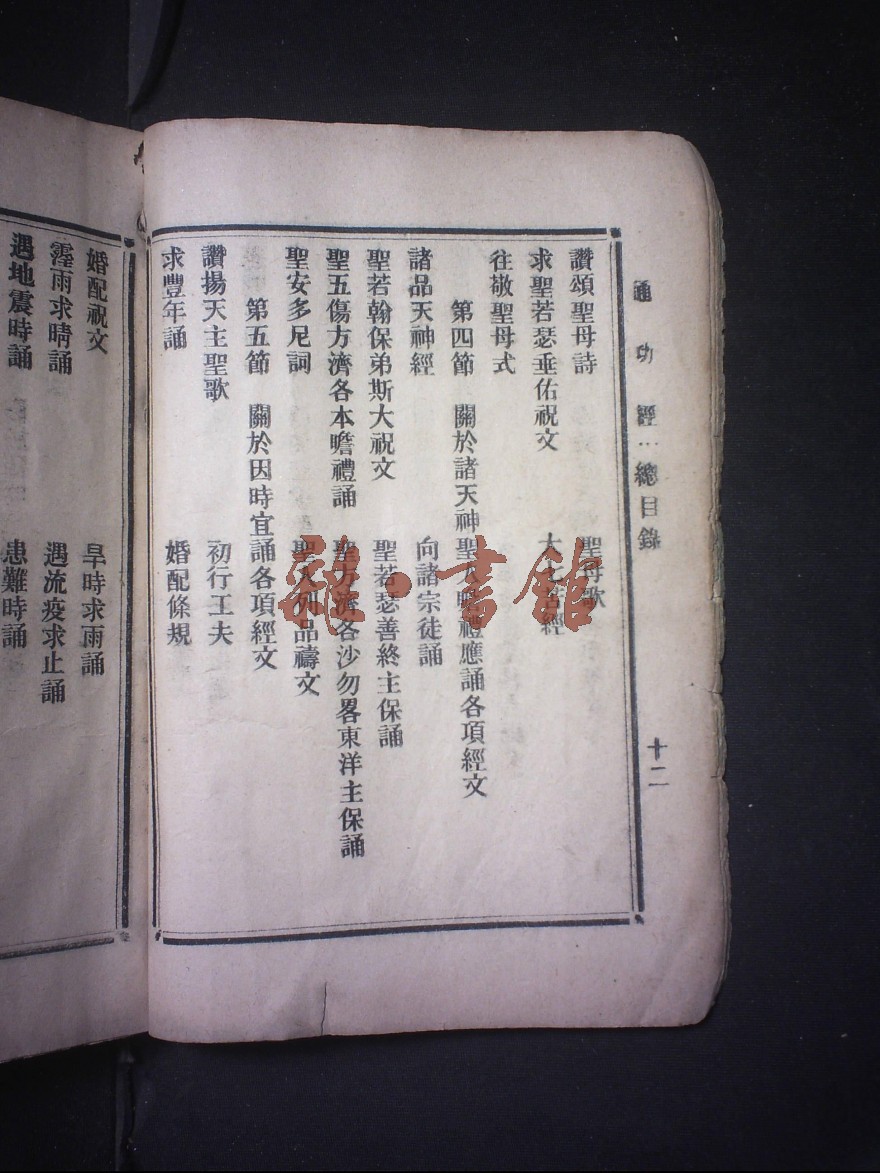 通功經…總目錄
十二
讚頌聖母詩 聖母歌
求聖若瑟垂佑祝文 大 經
往敬聖母式
第四節 關於諸天神聖人瞻禮應誦各項經文
諸品天神經 向諸宗徒誦
聖若翰保弟斯大祝文 聖若瑟善終主保誦
聖五傷方濟各本瞻禮誦 聖方濟各沙勿畧東洋主保誦
聖安多尼詞 聖人列品禱文
第五節 關於因時宜誦各項經文
讚揚天主聖歌 初行工夫
求豐年誦 婚配條規
婚配祝文 旱時求雨誦
霪雨求晴誦 遇流疫求止誦
遇地震時誦 患難時誦
雜·書館